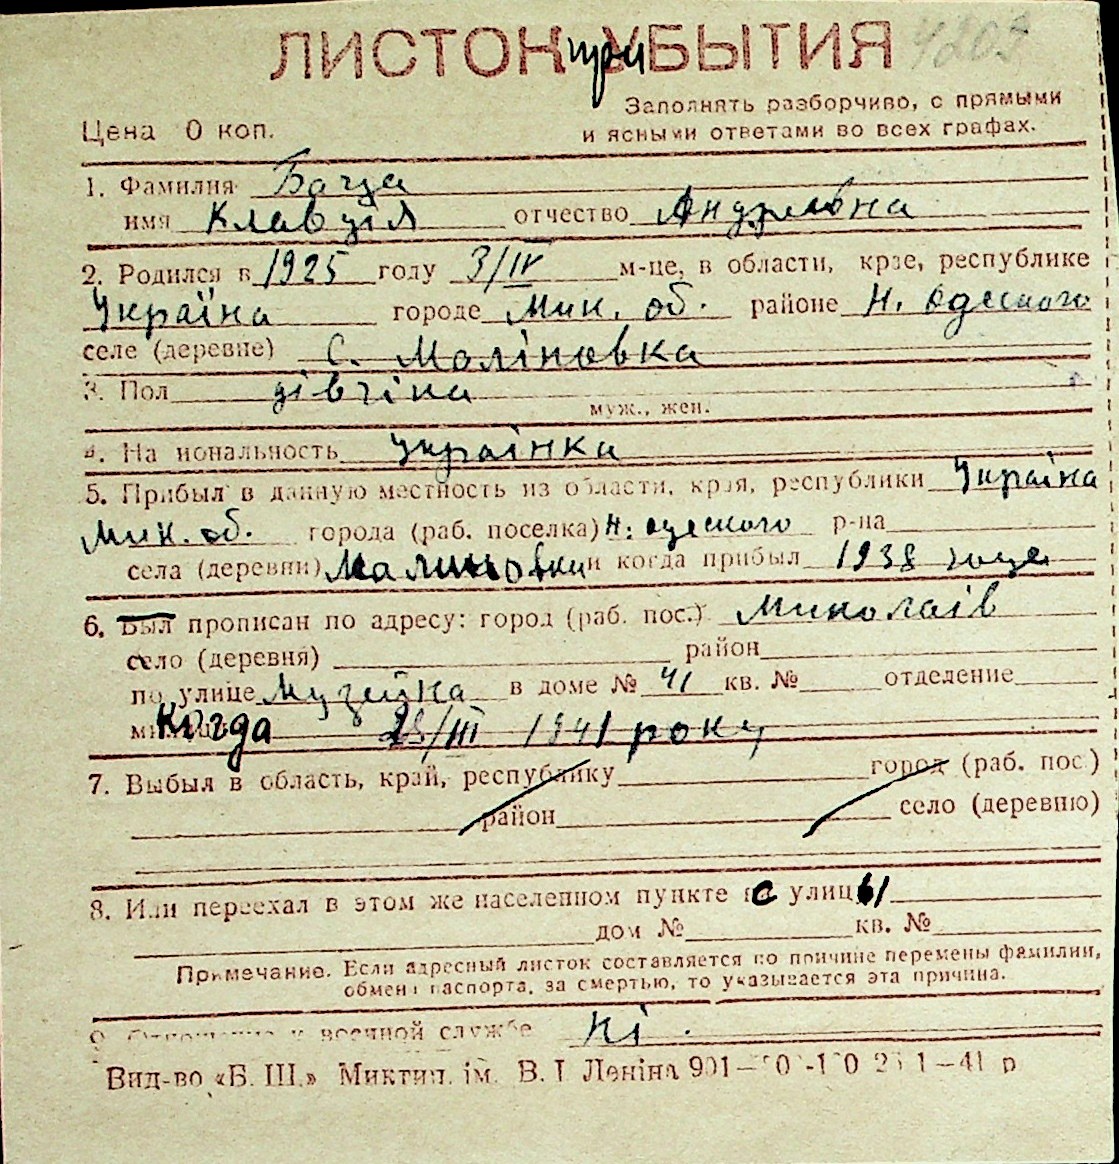 ЛИСТОК при УБЫТИЯ
Заполнять разборчиво, с прямыми
Цена 0 коп. и ясными ответами во всех графах.
1. Фамилия
имя Клавдія отчество Андреевна
2. Родился в 1925 году 3/IV м-це, в области, крае, республике
Україна городе Мик. об. районе Н. Одеского
селе (деревне) С. Моліновка
3. Пол дівчіна
муж., жен.
4. Национальность Украінка
5. Прибыл в данную местность из области, края, республики Украіна
Мик. об. города (раб. поселка) Н. Одеского р-на
села (деревни) Малиновки и когда прибыл 1938 годе
6. Был прописан по адресу: город (раб. пос.) Миколаів
село (деревня) район
по улице Музейна в доме № 41 кв. № отделение
Когда 28/III 1941 року
7. Выбыл в область, край, республику город (раб. пос.)
район село (деревню)
8. Или переехал в этом же населенном пункте с улицы
дом № кв. №
Примечание. Если адресный листок составляется по причине перемены фамилии,
обмена паспорта, за смертью, то указывается эта причина.
9. Отношение к военной службе Ні.
Вид-во «Б. Ш.» Миктип. ім. В. І Леніна 1—41 р